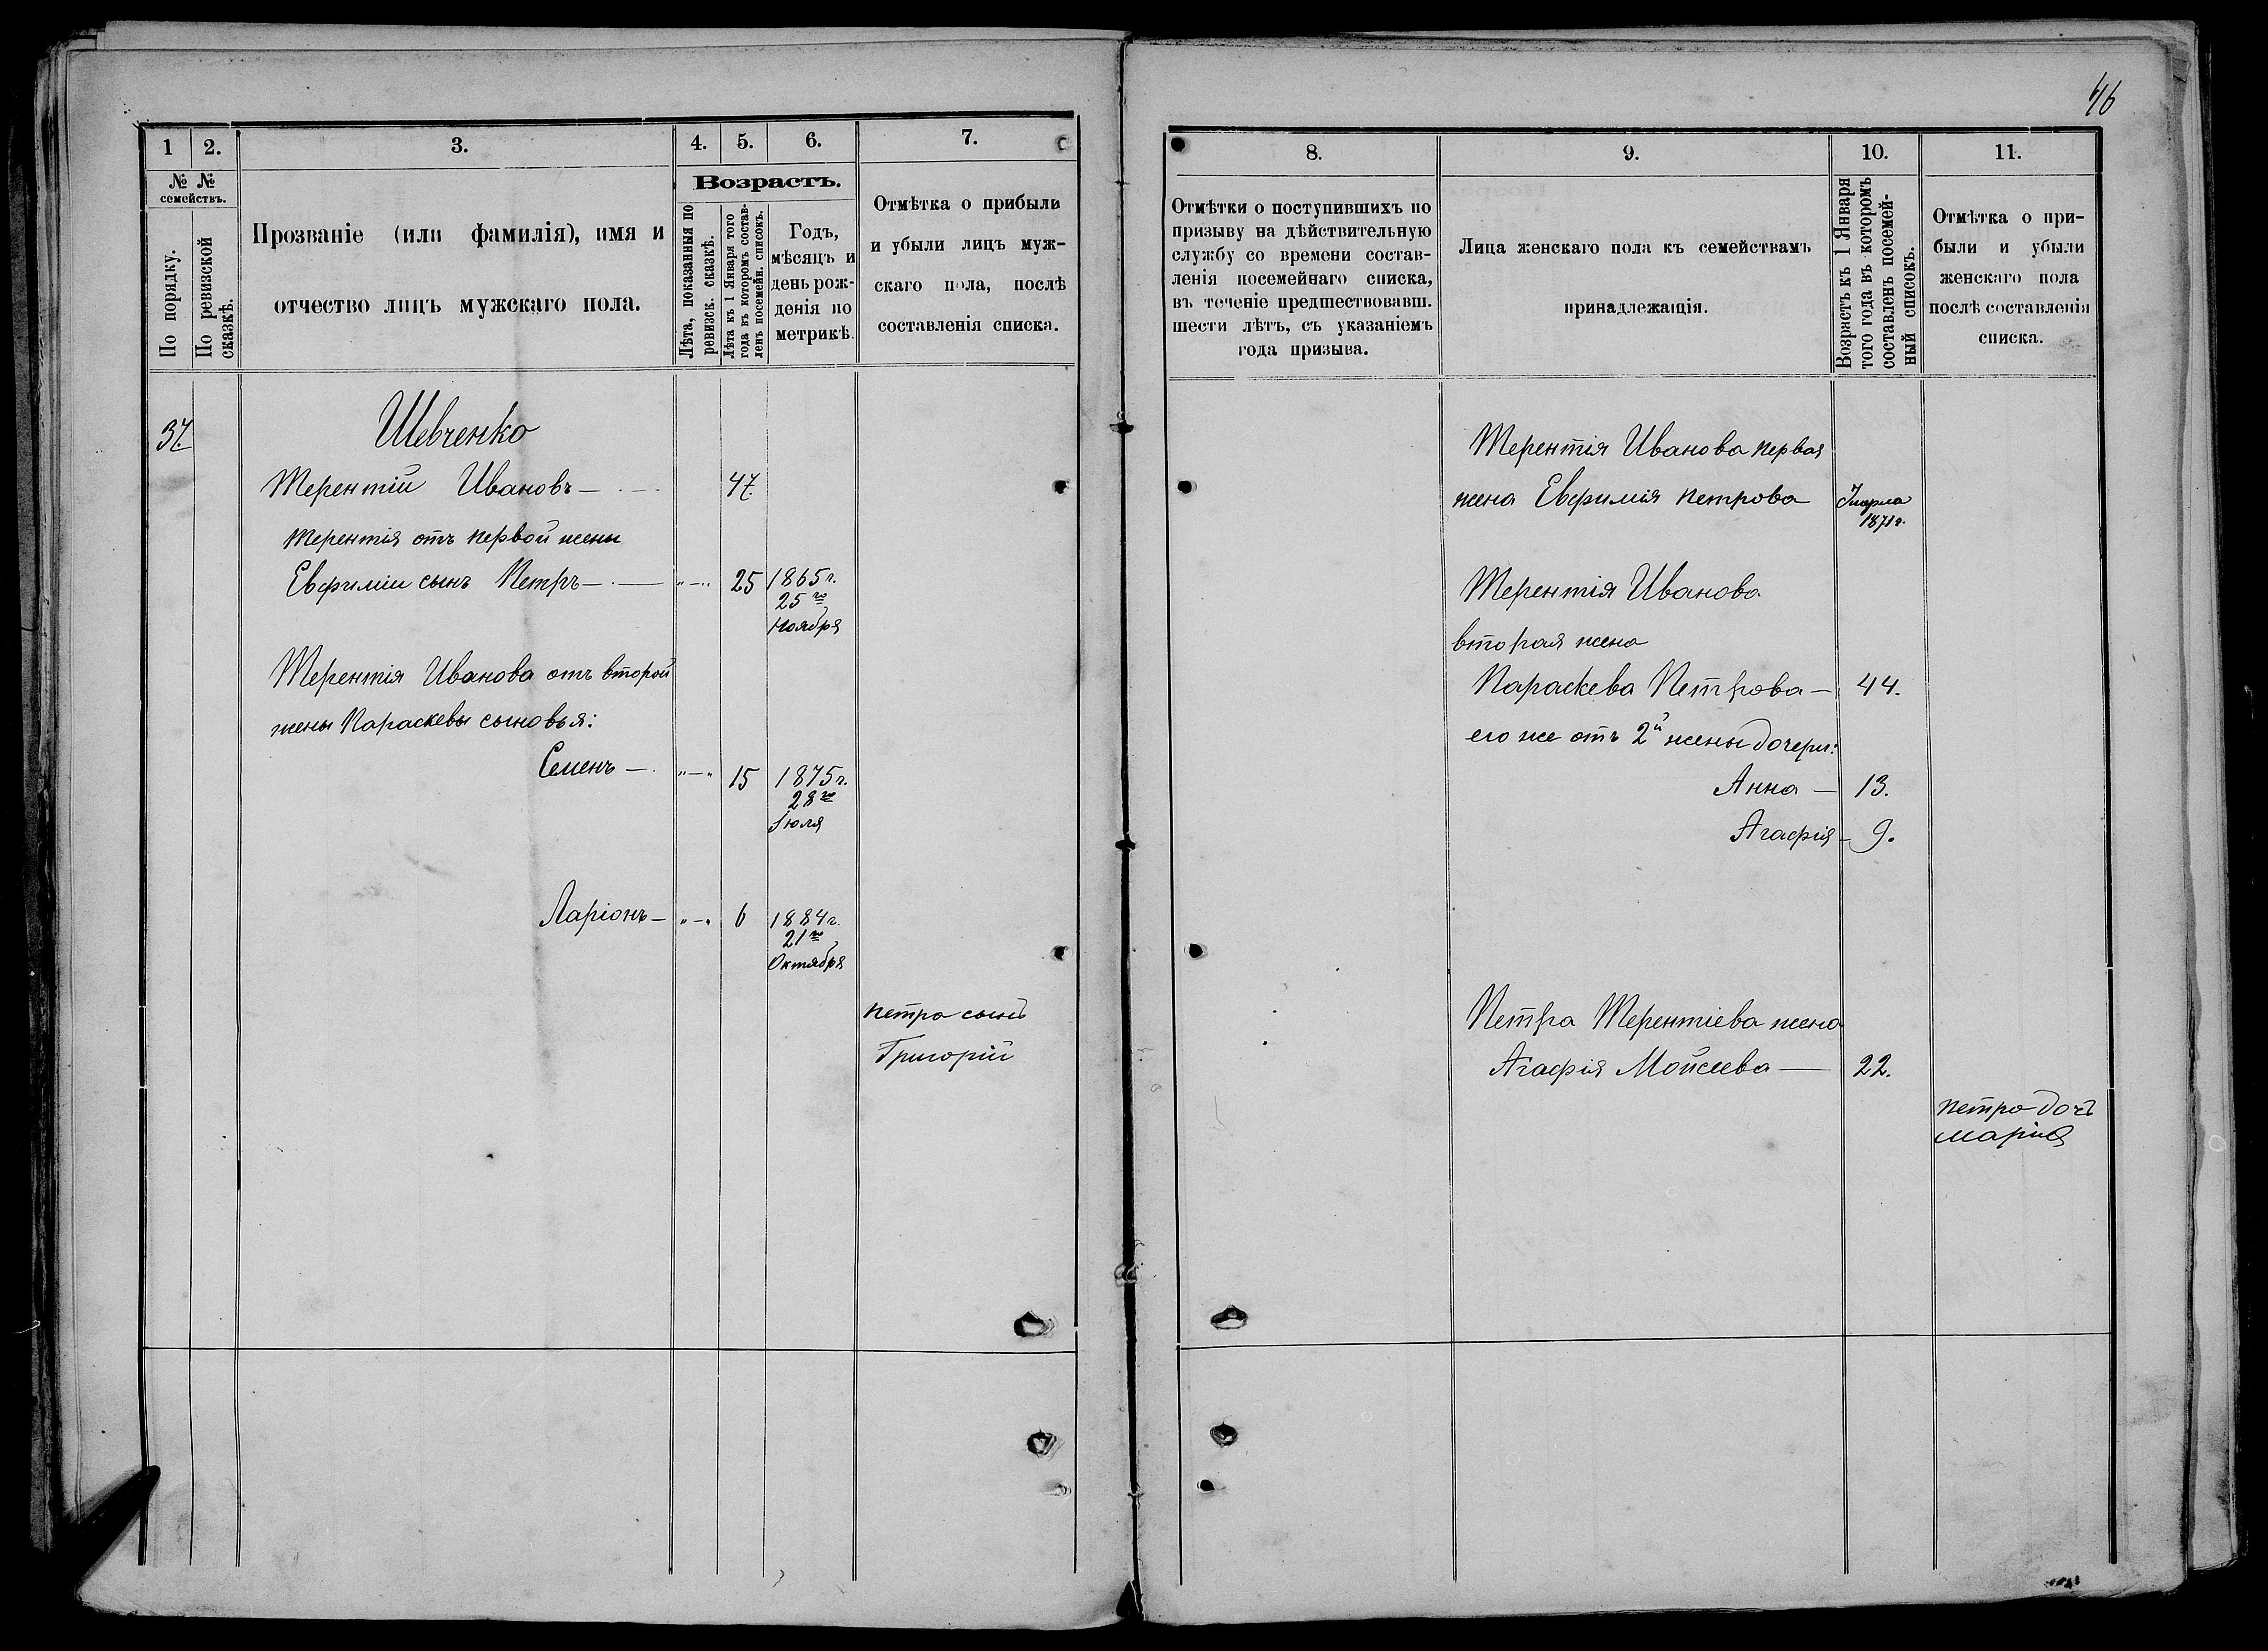 46
1
2.
3.
4.
5.
6.
7.
№ №
семействъ.
По порядку.
По ревизской
сказкѣ.
Прозваніе (или фамилія), имя и
отчество лицъ мужскаго пола.
Возрастъ.
Лѣта, показанныя по
ревизск. сказкѣ.
Лѣта къ 1 Января того
года въ которомъ состав-
ленъ посемейн. списокъ.
Годъ,
мѣсяцъ и
день рож-
денія по
метрикѣ.
Отмѣтка о прибыли
и убыли лицъ муж-
скаго пола, послѣ
составленія списка.
37.
Шевченко
Терентій Ивановъ — 47.
Терентія отъ первой жены
Евфиміи сынъ Петръ — "—" 25 1865 г.
25го
Ноября
Терентія Иванова отъ второй
жены Параскевы сыновья:
Семенъ — "—" 15 1875 г.
28го
Іюля
Ларіонъ — "—" 6 1884 г.
21го
Октября
петра сынъ
Григорій
8.
9.
10.
11.
Отмѣтки о поступившихъ по
призыву на дѣйствительную
службу со времени состав-
ленія посемейнаго списка,
въ теченіе предшествовавш.
шести лѣтъ, съ указаніемъ
года призыва.
Лица женскаго пола къ семействамъ
принадлежащія.
Возрастъ къ 1 Января
того года въ которомъ
составленъ посемей-
ный списокъ.
Отмѣтка о при-
были и убыли
женскаго пола
послѣ составленія
списка.
Терентія Иванова первая
жена Евфимія Петрова Умерла
1871 г.
Терентія Иванова
вторая жена
Параскева Петрова — 44.
его же отъ 2й жены дочери:
Анна — 13.
Агафія — 9.
Петра Терентіева жена
Агафія Мойсеева — 22.
петра дочъ
марія